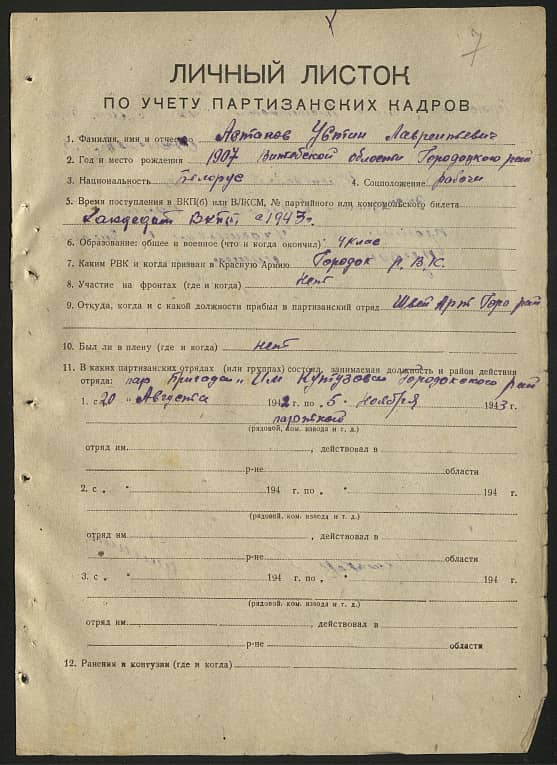 7
ЛИЧНЫЙ ЛИСТОК
ПО УЧЕТУ ПАРТИЗАНСКИХ КАДРОВ
1. Фамилия, имя и отчество Лаврентьевич
2. Год и место рождения 1907 Витебской области Городокского рай
3. Национальность Белорус 4. Соцположение рабочи
5. Время поступления в ВКП(б) или ВЛКСМ, № партийного или комсомольского билета
Кандедат с 1943 г.
6. Образование: общее и военное (что и когда окончил) 4 клас
7. Каким РВК и когда призван в Красную Армию Городок Р.В.К.
8. Участие на фронтах (где и когда) нет
9. Откуда, когда и с какой должности прибыл в партизанский отряд Швей Арт Горо рай
10. Был ли в плену (где и когда) нет
11. В каких партизанских отрядах (или группах) состоял, занимаемая должность и район действия
отряда: пар Бригада „Им Кутузова Городокского рай
1. с 20 „ Августа 1942 г. по 5 - Ноября 1943 г.
(рядовой, ком. взвода и т. д.)
отряд им. , действовал в
р-не области
2. с „ “ 194 г. по „ “ 194 г.
(рядовой, ком. взвода и т. д.)
отряд им. , действовал в
р-не области
3. с „ “ 194 г. по „ “ 194 г.
(рядовой, ком. взвода и т. д.)
отряд им. , действовал в
р-не области
12. Ранения и контузии (где и когда)